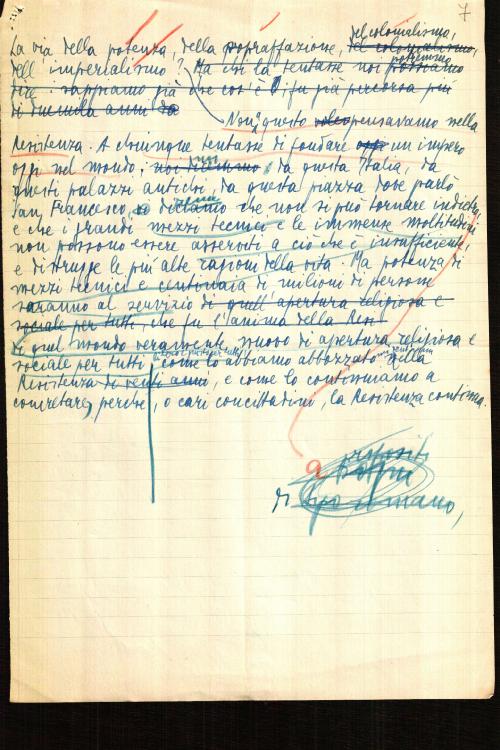 7
La via della potenza, della sopraffazione, del colonialismo, del colonialismo,
dell'imperialismo? Ma chi la tentasse noi possiamo potremmo
dire: sappiamo già che cos'è. Fu già percorsa più
di duemila anni da
Non a questo pensavamo nella
Resistenza. A chiunque tentasse di fondare oggi un impero
oggi nel mondo, noi diremmo da questa Italia, da
questi palazzi antichi, da questa piazza dove parlò
San Francesco, diciamo che non si può tornare indietro,
e che i grandi mezzi tecnici e le immense moltitudini
non possono essere asserviti a ciò che è insufficiente
e distrugge le più alte ragioni della vita. Ma potenza di
mezzi tecnici e centinaia di milioni di persone
saranno al servizio di quell'apertura religiosa e
sociale per tutti, che fu l'anima della Resi
di quel mondo veramente nuovo di apertura religiosa e
sociale per tutti come lo abbiamo abbozzato nella
Resistenza di venti anni, e come lo continuiamo a
concretare, perché, o cari concittadini, la Resistenza continua.
a
di tipo romano,